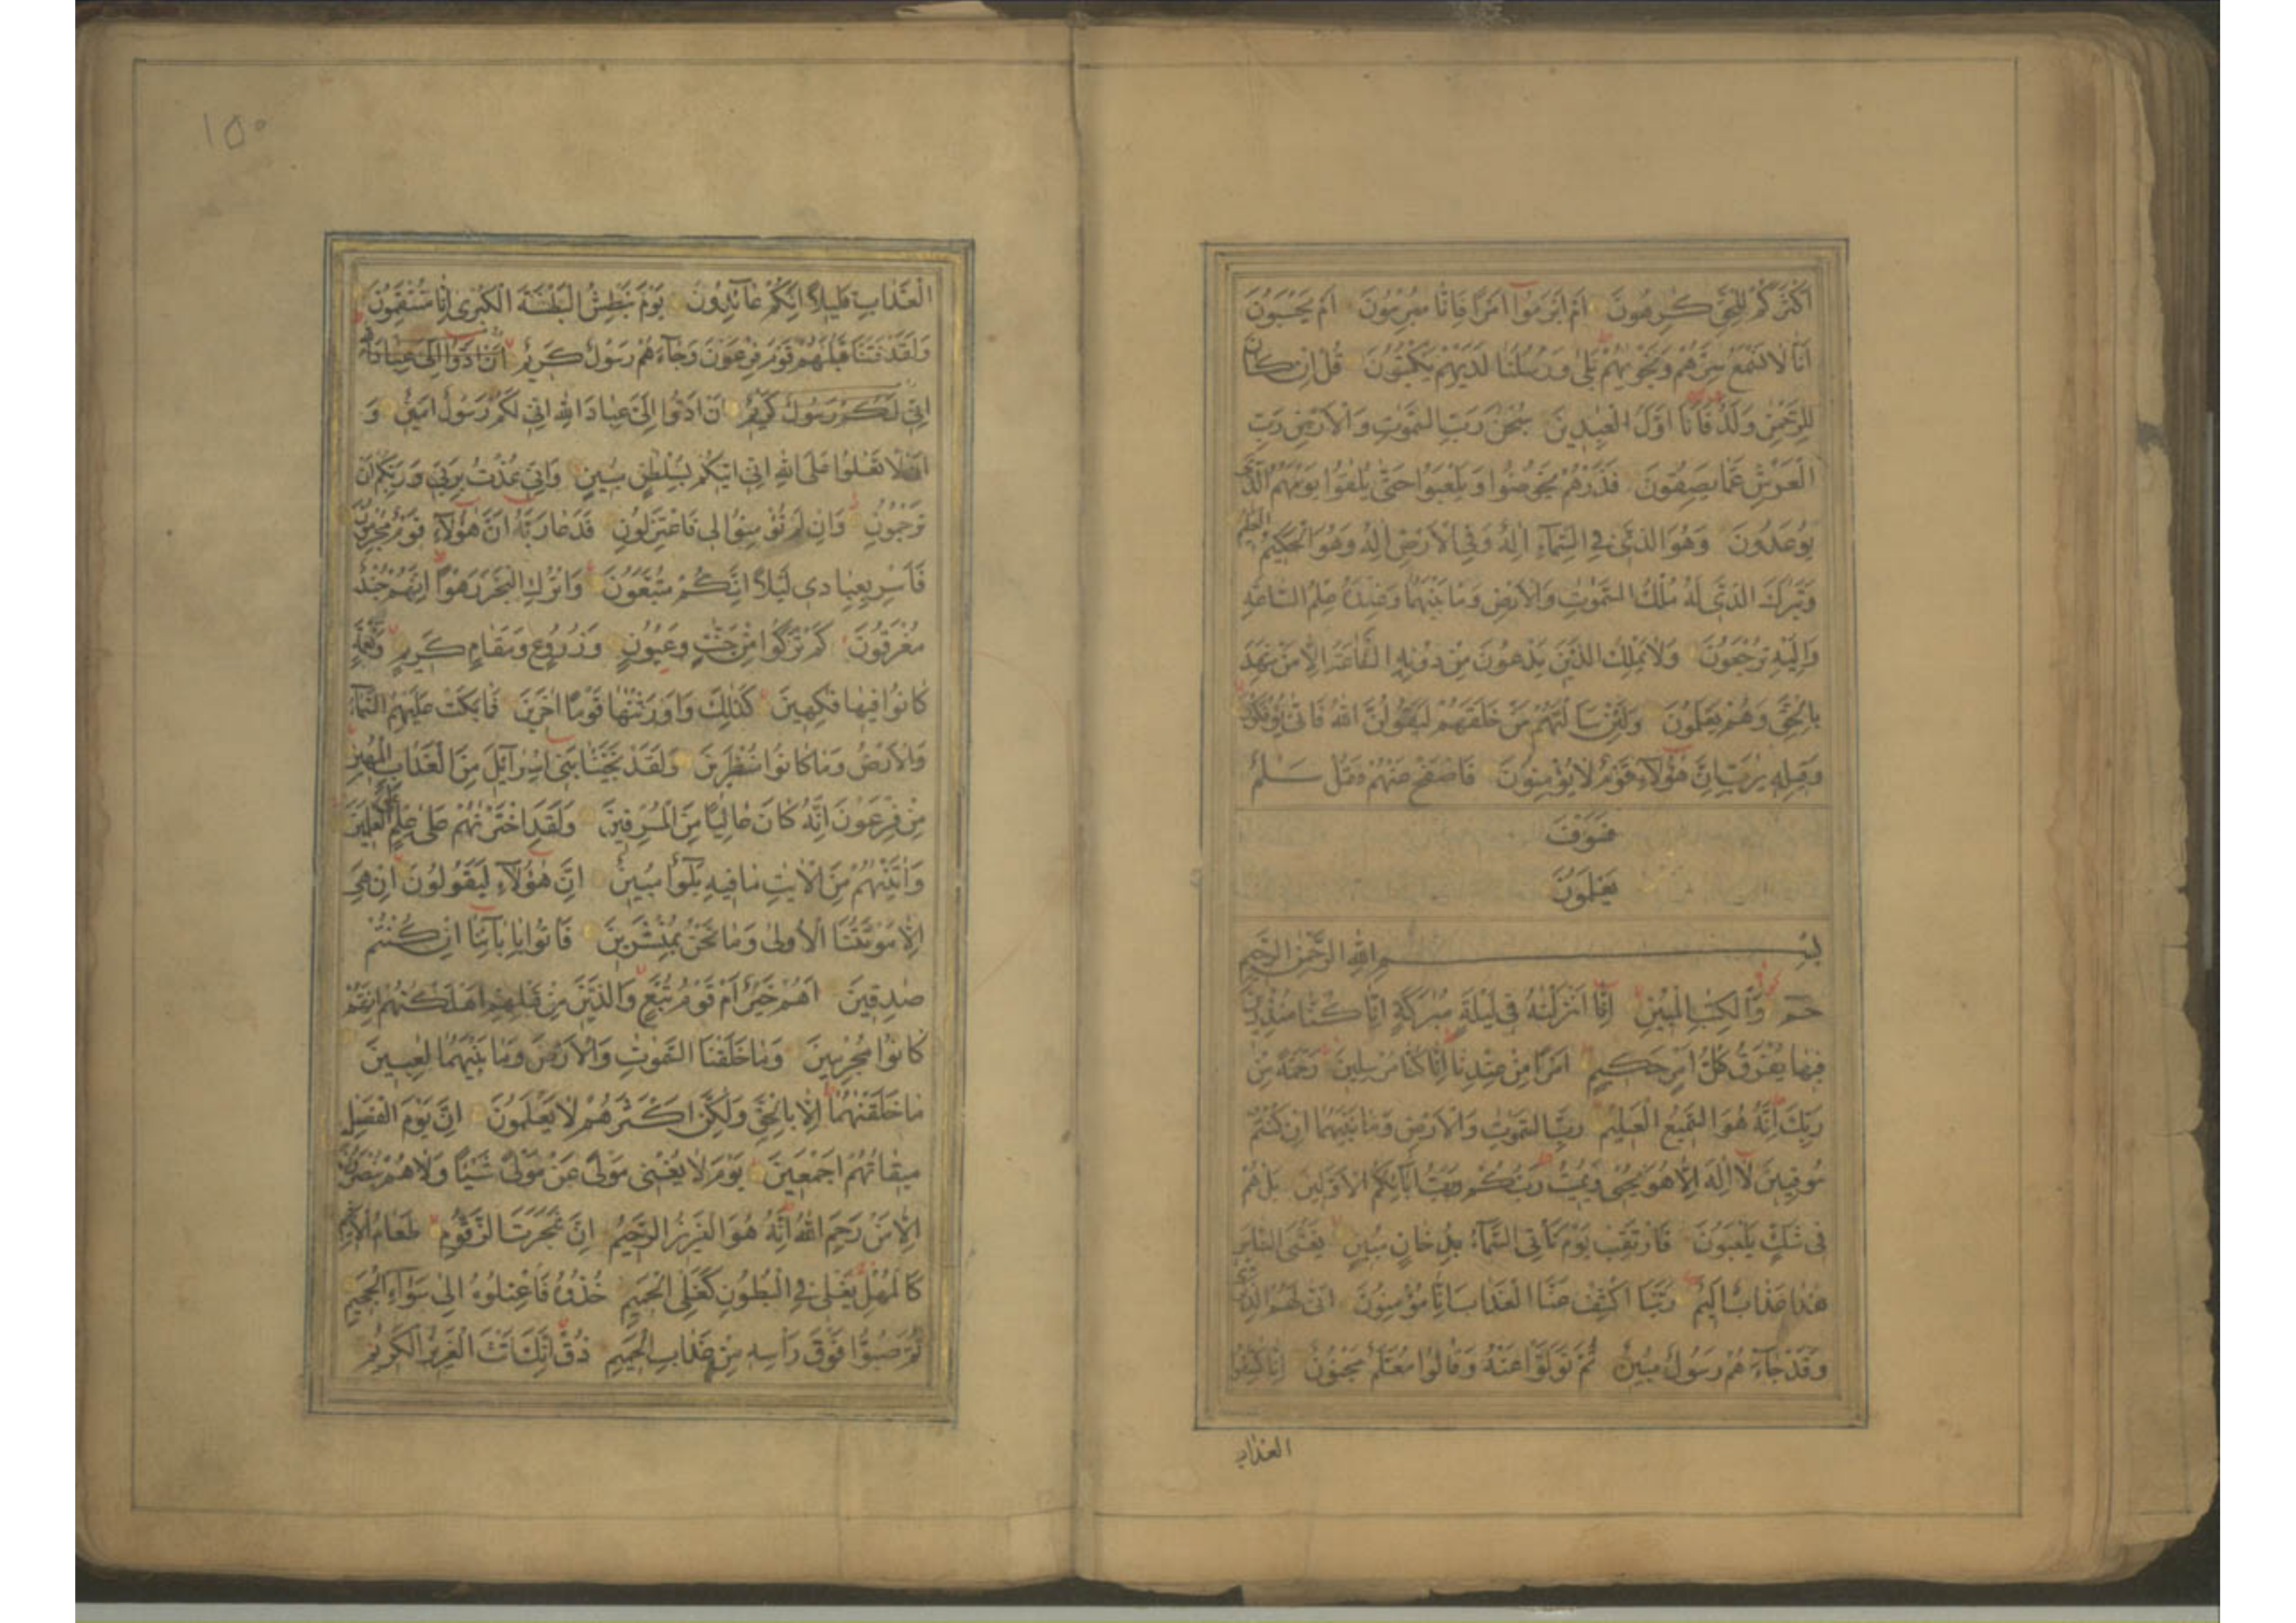 اَكْثَرَكُمْ لِلْحَقِّ كٰرِهُونَ اَمْ اَبْرَمُوا اَمْرًا فَاِنَّا مُبْرِمُونَ اَمْ يَحْسَبُونَ
اَنَّا لَا نَسْمَعُ سِرَّهُمْ وَنَجْوٰيهُمْ بَلٰى وَرُسُلُنَا لَدَيْهِمْ يَكْتُبُونَ قُلْ اِنْ كَانَ
لِلرَّحْمٰنِ وَلَدٌ فَاَنَا اَوَّلُ الْعٰبِدِينَ سُبْحٰنَ رَبِّ السَّمٰوٰتِ وَالْاَرْضِ رَبِّ
الْعَرْشِ عَمَّا يَصِفُونَ فَذَرْهُمْ يَخُوضُوا وَيَلْعَبُوا حَتّٰى يُلٰقُوا يَوْمَهُمُ الَّذِي
يُوعَدُونَ وَهُوَ الَّذِي فِي السَّمَاۤءِ اِلٰهٌ وَفِي الْاَرْضِ اِلٰهٌ وَهُوَ الْحَكِيمُ الْعَلِيمُ
وَتَبٰرَكَ الَّذِي لَهُ مُلْكُ السَّمٰوٰتِ وَالْاَرْضِ وَمَا بَيْنَهُمَا وَعِنْدَهُ عِلْمُ السَّاعَةِ
وَاِلَيْهِ تُرْجَعُونَ وَلَا يَمْلِكُ الَّذِينَ يَدْعُونَ مِنْ دُونِهِ الشَّفَاعَةَ اِلَّا مَنْ شَهِدَ
بِالْحَقِّ وَهُمْ يَعْلَمُونَ وَلَئِنْ سَاَلْتَهُمْ مَنْ خَلَقَهُمْ لَيَقُولُنَّ اللهُ فَاَنّٰى يُؤْفَكُونَ
وَقِيلِهِ يٰرَبِّ اِنَّ هٰؤُلَاۤءِ قَوْمٌ لَا يُؤْمِنُونَ فَاصْفَحْ عَنْهُمْ وَقُلْ سَلٰمٌ
فَسَوْفَ
يَعْلَمُونَ
بِسْمِ اللهِ الرَّحْمٰنِ الرَّحِيمِ
حٰمۤ وَالْكِتٰبِ الْمُبِينِ اِنَّا اَنْزَلْنٰهُ فِي لَيْلَةٍ مُبٰرَكَةٍ اِنَّا كُنَّا مُنْذِرِينَ
فِيهَا يُفْرَقُ كُلُّ اَمْرٍ حَكِيمٍ اَمْرًا مِنْ عِنْدِنَا اِنَّا كُنَّا مُرْسِلِينَ رَحْمَةً مِنْ
رَبِّكَ اِنَّهُ هُوَ السَّمِيعُ الْعَلِيمُ رَبِّ السَّمٰوٰتِ وَالْاَرْضِ وَمَا بَيْنَهُمَا اِنْ كُنْتُمْ
مُوقِنِينَ لَا اِلٰهَ اِلَّا هُوَ يُحْيِي وَيُمِيتُ رَبُّكُمْ وَرَبُّ اٰبَاۤئِكُمُ الْاَوَّلِينَ بَلْ هُمْ
فِي شَكٍّ يَلْعَبُونَ فَارْتَقِبْ يَوْمَ تَأْتِي السَّمَاۤءُ بِدُخَانٍ مُبِينٍ يَغْشَى النَّاسَ
هٰذَا عَذَابٌ اَلِيمٌ رَبَّنَا اكْشِفْ عَنَّا الْعَذَابَ اِنَّا مُؤْمِنُونَ اَنّٰى لَهُمُ الذِّكْرٰى
وَقَدْ جَاۤءَهُمْ رَسُولٌ مُبِينٌ ثُمَّ تَوَلَّوْا عَنْهُ وَقَالُوا مُعَلَّمٌ مَجْنُونٌ اِنَّا كَاشِفُوا
العذاب
١٥٠
الْعَذَابِ قَلِيلًا اِنَّكُمْ عَاۤئِدُونَ يَوْمَ نَبْطِشُ الْبَطْشَةَ الْكُبْرٰى اِنَّا مُنْتَقِمُونَ
وَلَقَدْ فَتَنَّا قَبْلَهُمْ قَوْمَ فِرْعَوْنَ وَجَاۤءَهُمْ رَسُولٌ كَرِيمٌ اَنْ اَدُّوا اِلَيَّ عِبَادَ اللهِ
اِنِّي لَكُمْ رَسُولٌ كَرِيمٌ اَنْ اَدُّوا اِلَيَّ عِبَادَ اللهِ اِنِّي لَكُمْ رَسُولٌ اَمِينٌ وَ
اَنْ لَا تَعْلُوا عَلَى اللهِ اِنِّي اٰتِيكُمْ بِسُلْطٰنٍ مُبِينٍ وَاِنِّي عُذْتُ بِرَبِّي وَرَبِّكُمْ اَنْ
تَرْجُمُونِ وَاِنْ لَمْ تُؤْمِنُوا لِي فَاعْتَزِلُونِ فَدَعَا رَبَّهُ اَنَّ هٰؤُلَاۤءِ قَوْمٌ مُجْرِمُونَ
فَاَسْرِ بِعِبَادِي لَيْلًا اِنَّكُمْ مُتَّبَعُونَ وَاتْرُكِ الْبَحْرَ رَهْوًا اِنَّهُمْ جُنْدٌ
مُغْرَقُونَ كَمْ تَرَكُوا مِنْ جَنّٰتٍ وَعُيُونٍ وَزُرُوعٍ وَمَقَامٍ كَرِيمٍ وَنَعْمَةٍ
كَانُوا فِيهَا فٰكِهِينَ كَذٰلِكَ وَاَوْرَثْنٰهَا قَوْمًا اٰخَرِينَ فَمَا بَكَتْ عَلَيْهِمُ السَّمَاۤءُ
وَالْاَرْضُ وَمَا كَانُوا مُنْظَرِينَ وَلَقَدْ نَجَّيْنَا بَنِي اِسْرَاۤئِيلَ مِنَ الْعَذَابِ الْمُهِينِ
مِنْ فِرْعَوْنَ اِنَّهُ كَانَ عَالِيًا مِنَ الْمُسْرِفِينَ وَلَقَدِ اخْتَرْنٰهُمْ عَلٰى عِلْمٍ عَلَى الْعٰلَمِينَ
وَاٰتَيْنٰهُمْ مِنَ الْاٰيٰتِ مَا فِيهِ بَلٰۤؤٌا مُبِينٌ اِنَّ هٰؤُلَاۤءِ لَيَقُولُونَ اِنْ هِيَ
اِلَّا مَوْتَتُنَا الْاُولٰى وَمَا نَحْنُ بِمُنْشَرِينَ فَأْتُوا بِاٰبَاۤئِنَا اِنْ كُنْتُمْ
صٰدِقِينَ اَهُمْ خَيْرٌ اَمْ قَوْمُ تُبَّعٍ وَالَّذِينَ مِنْ قَبْلِهِمْ اَهْلَكْنٰهُمْ اِنَّهُمْ
كَانُوا مُجْرِمِينَ وَمَا خَلَقْنَا السَّمٰوٰتِ وَالْاَرْضَ وَمَا بَيْنَهُمَا لٰعِبِينَ
مَا خَلَقْنٰهُمَا اِلَّا بِالْحَقِّ وَلٰكِنَّ اَكْثَرَهُمْ لَا يَعْلَمُونَ اِنَّ يَوْمَ الْفَصْلِ
مِيقَاتُهُمْ اَجْمَعِينَ يَوْمَ لَا يُغْنِي مَوْلًى عَنْ مَوْلًى شَيْـًٔا وَلَا هُمْ يُنْصَرُونَ
اِلَّا مَنْ رَحِمَ اللهُ اِنَّهُ هُوَ الْعَزِيزُ الرَّحِيمُ اِنَّ شَجَرَتَ الزَّقُّومِ طَعَامُ الْاَثِيمِ
كَالْمُهْلِ يَغْلِي فِي الْبُطُونِ كَغَلْيِ الْحَمِيمِ خُذُوهُ فَاعْتِلُوهُ اِلٰى سَوَاۤءِ الْجَحِيمِ
ثُمَّ صُبُّوا فَوْقَ رَأْسِهِ مِنْ عَذَابِ الْحَمِيمِ ذُقْ اِنَّكَ اَنْتَ الْعَزِيزُ الْكَرِيمُ